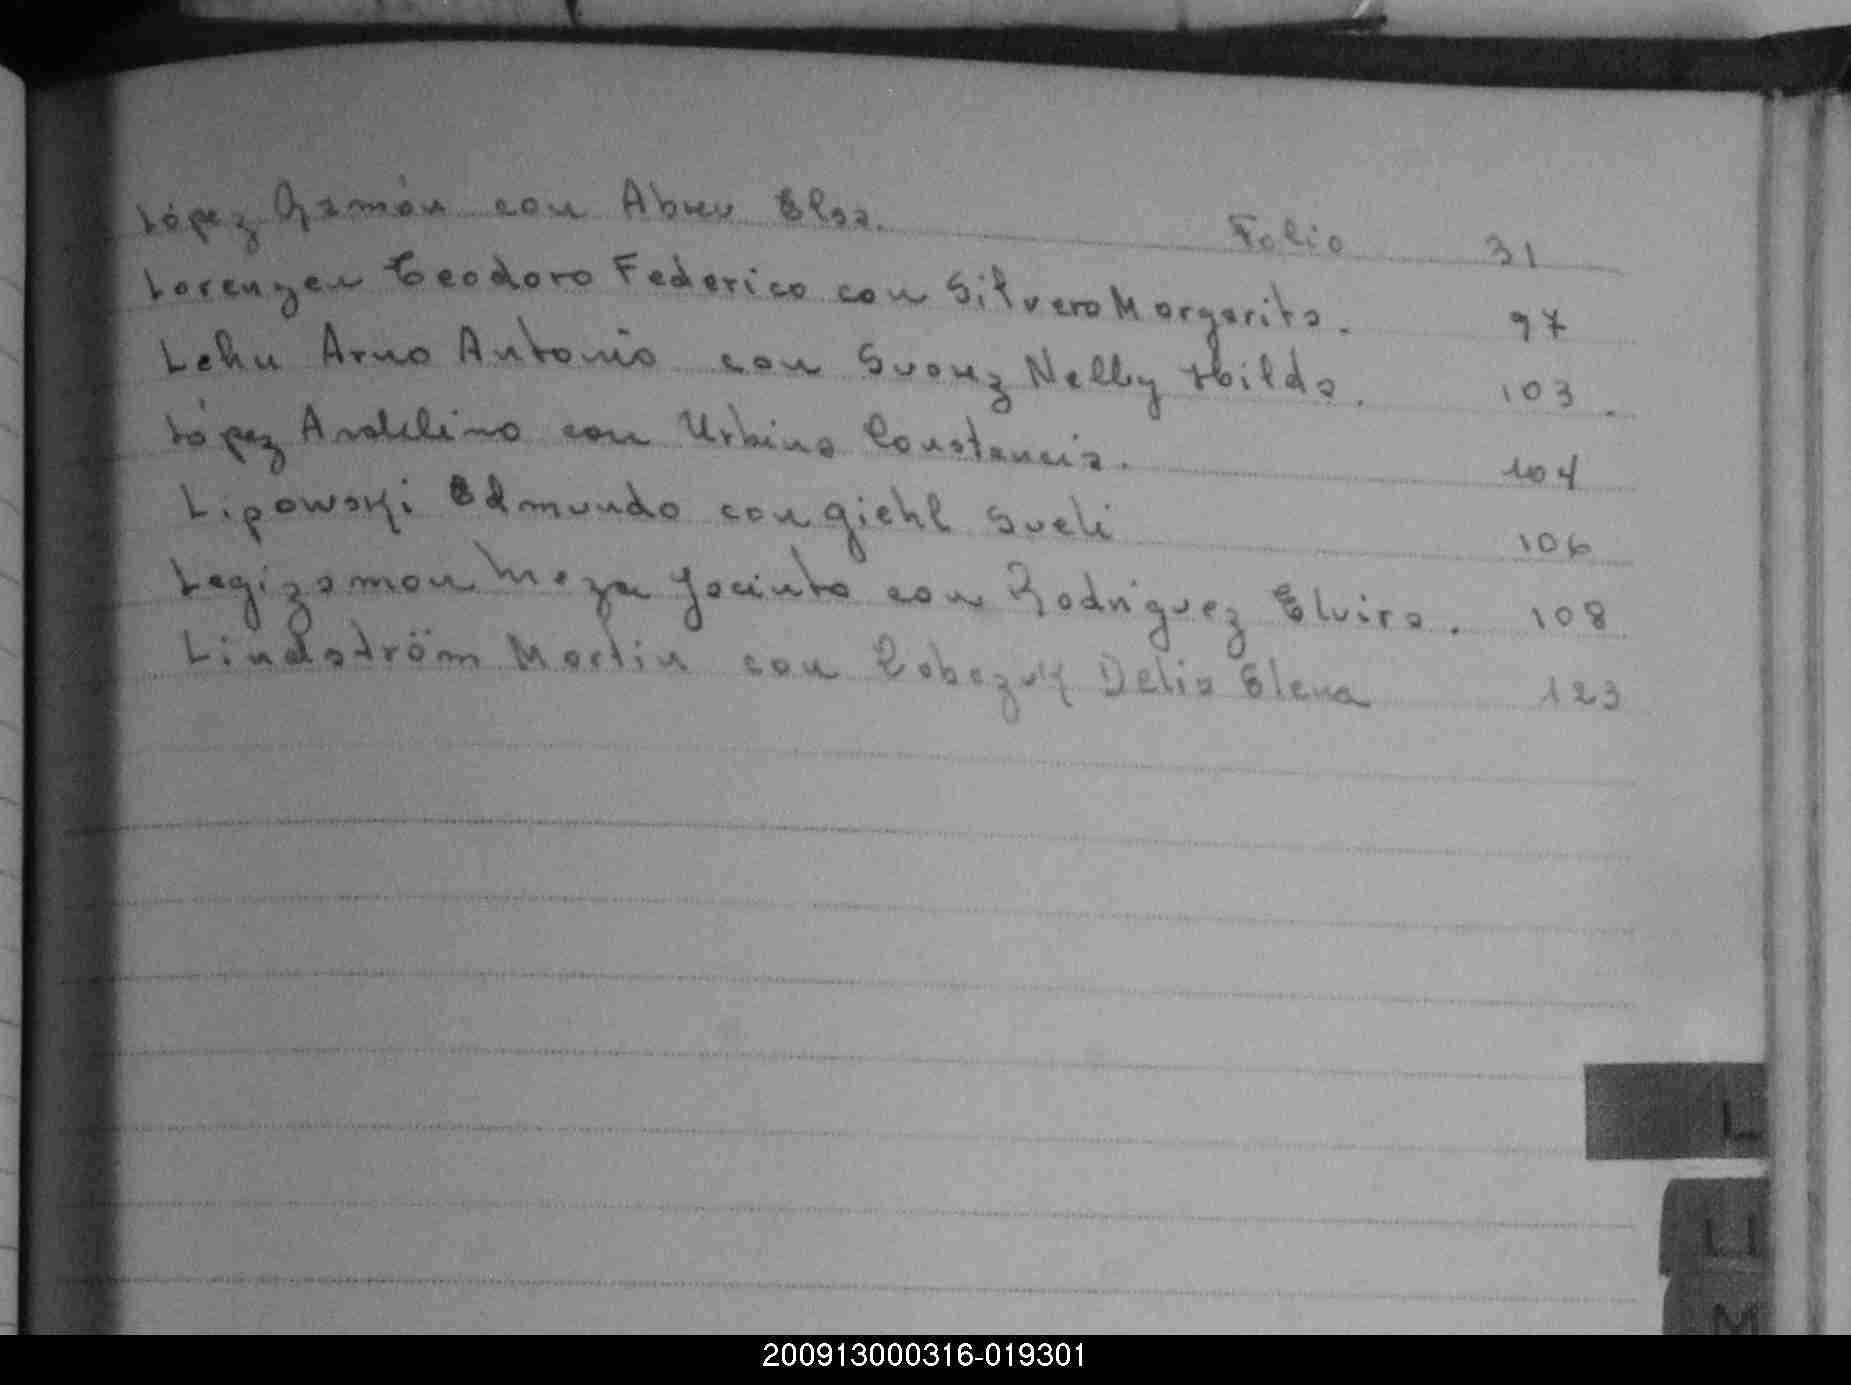 López Ramón con Abreu Elsa. Folio 31
Lorenzen Teodoro Federico con Silvero Margarita. 97
Lehn Arno Antonio con Suarez Nelly Hilda. 103.
López con Urbina Constancia. 104
Lipowski Edmundo con Giehl Sueli 106
Legizamon Meza Jacinto con Rodriguez Elvira. 108
Lindström Martin con Delia Elena 123
L
LL
M
200913000316-019301